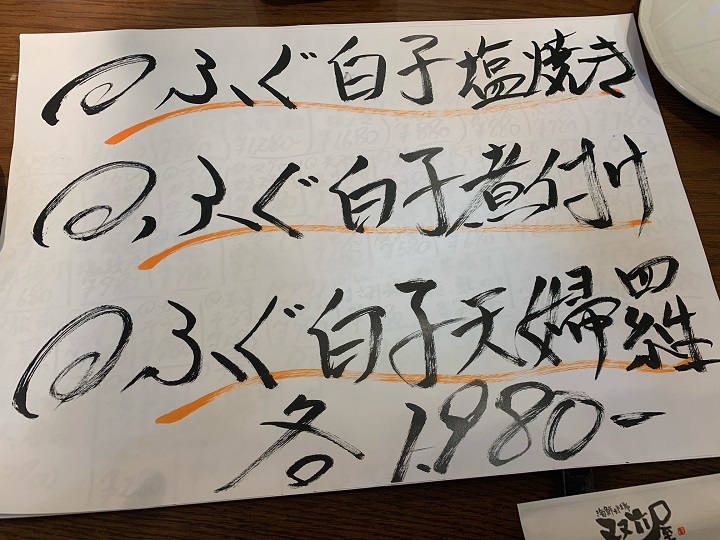 @ふぐ白子塩焼き
@ふぐ白子煮付け
@ふぐ白子天婦羅
各 1.980-